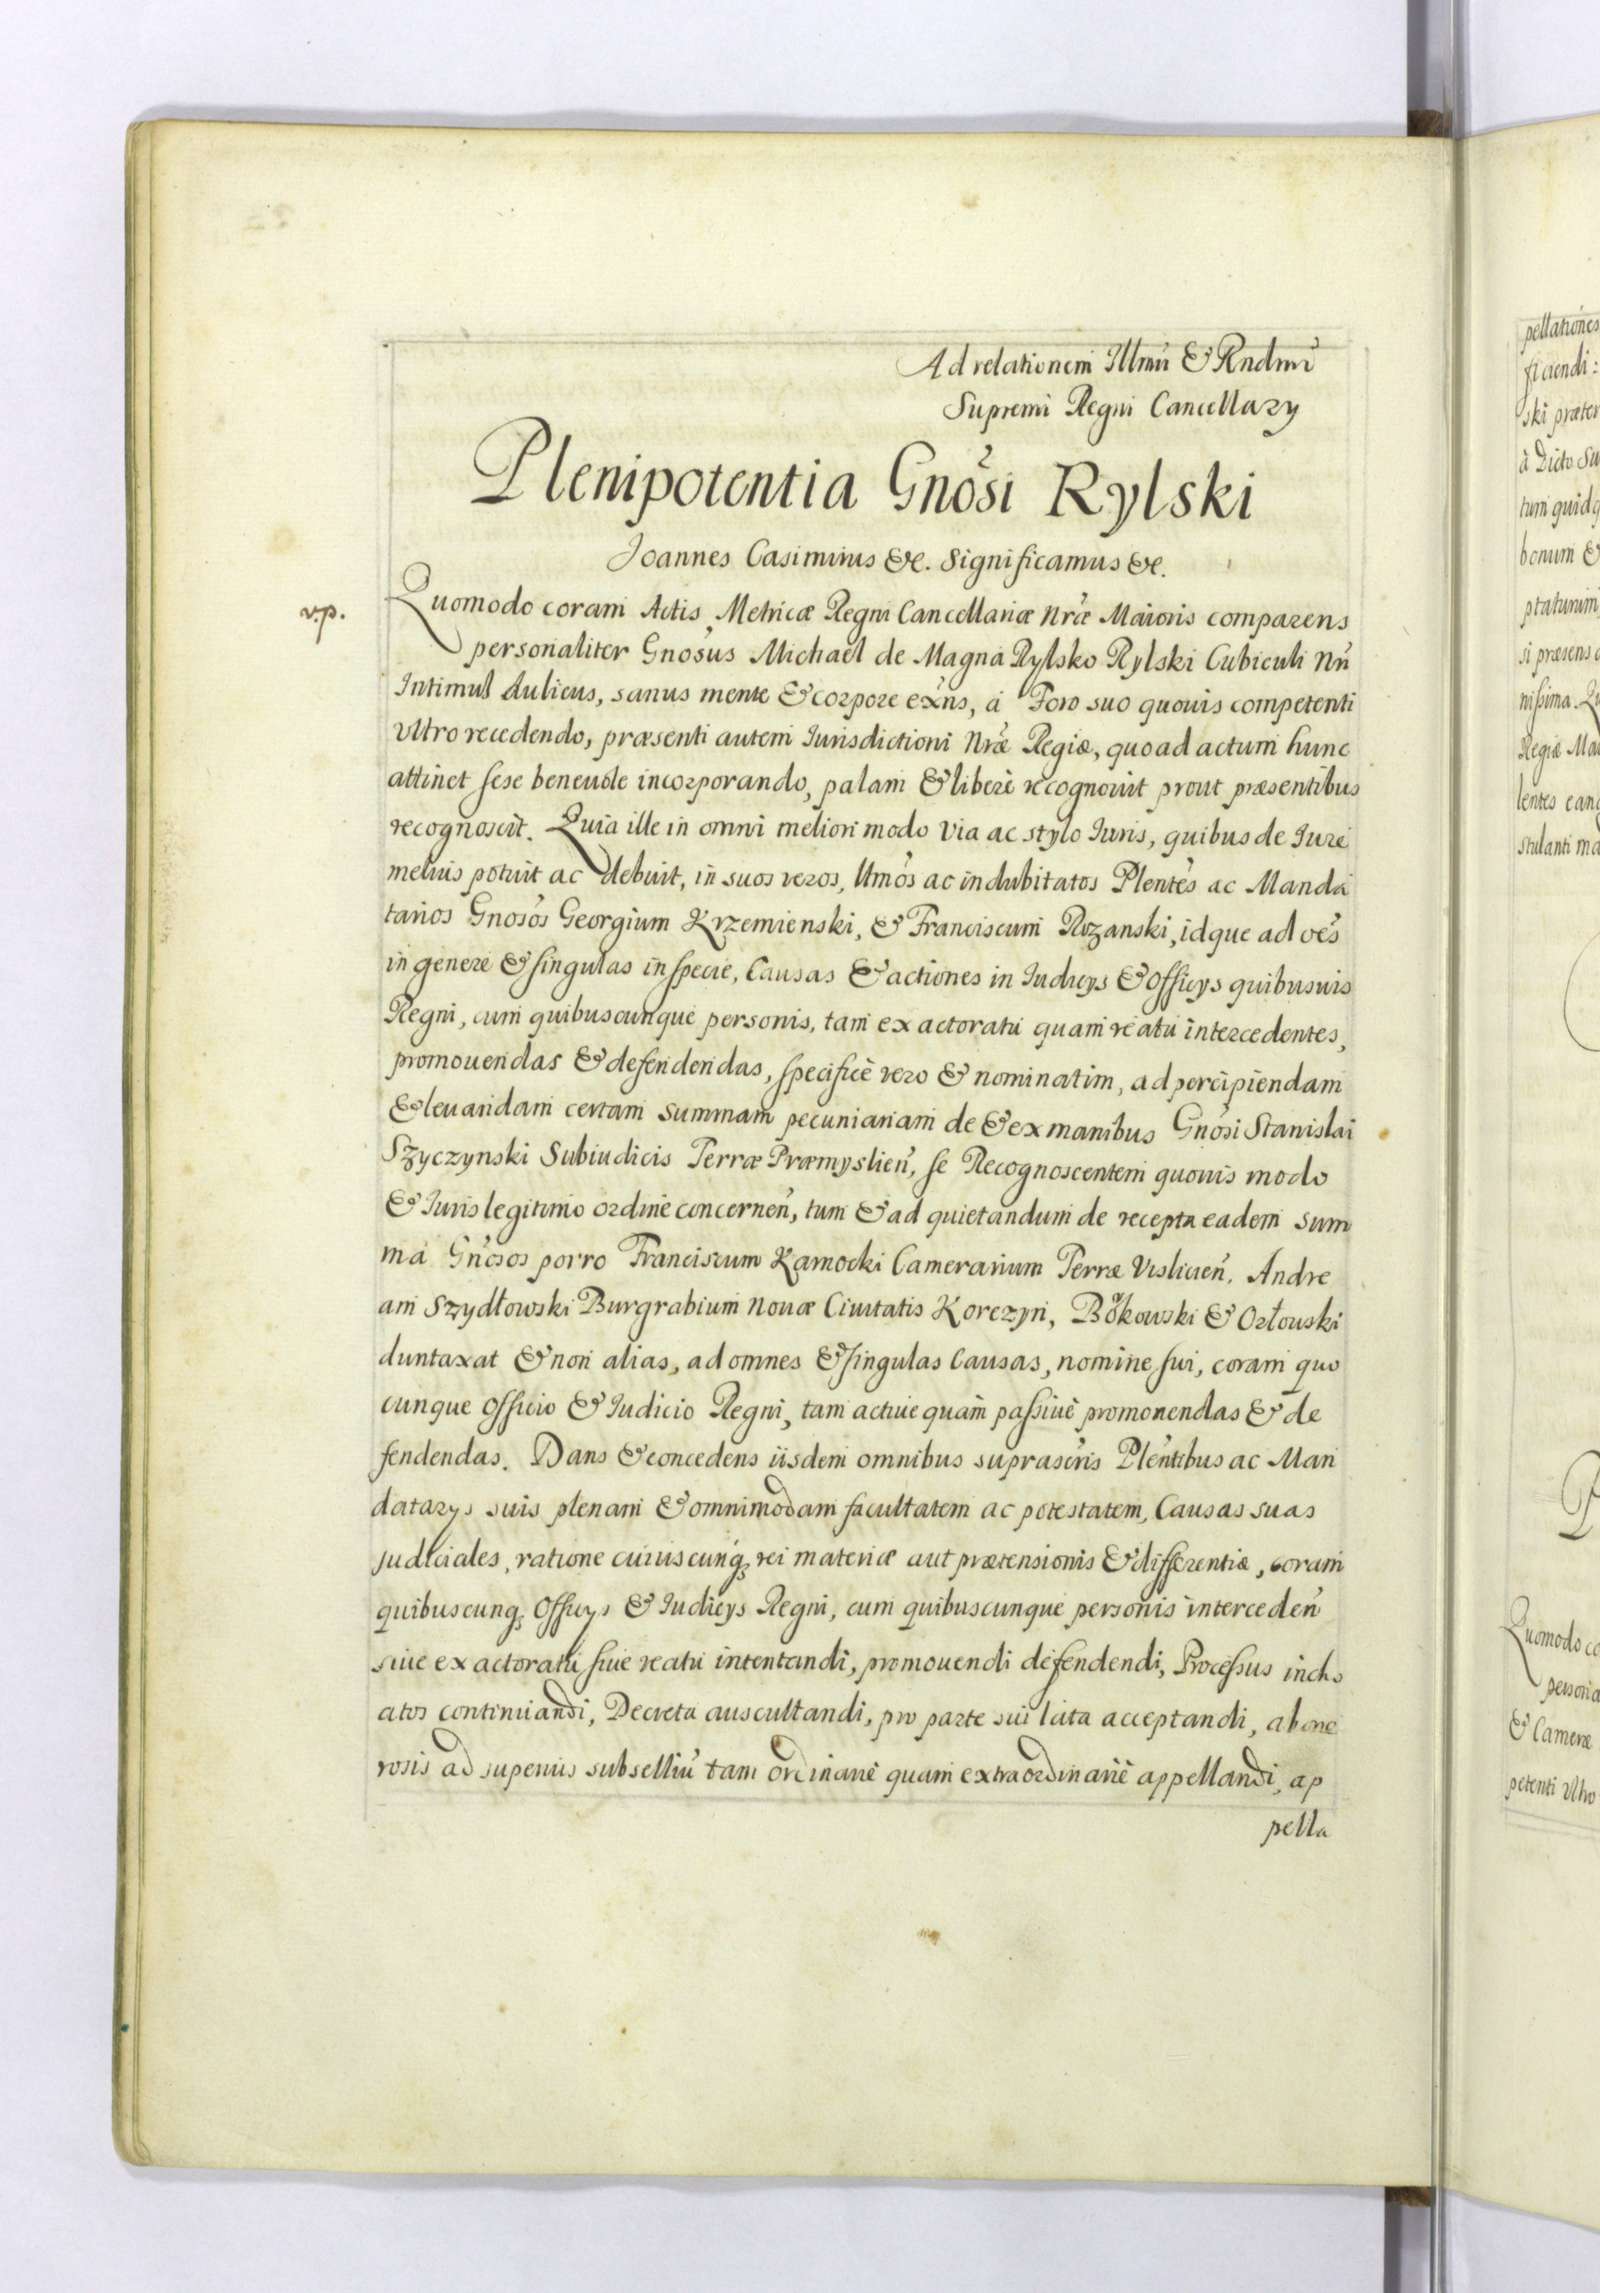 Ad relationem Illmi & Rndmi
Supremi Regni Cancellary
Plenipotentia Gnosi Rylski
Joannes Casimirus &c. Significamus &c.
v.p.
Quomodo coram Actis Metricæ Regni Cancellariæ Nræ Maioris comparens
personaliter Gnosus Michael de Magna Rylsko Rylski Cubiculi Nri
Intimus Aulicus, sanus mente & corpore exns, à Foro suo quouis competenti
Vltro recedendo, præsenti autem Iurisdictioni Nræ Regiæ, quoad actum hunc
attinet sese beneuole incorporando, palam & liberè recognouit prout præsentibus
recognoscit. Quia ille in omni meliori modo via ac stylo Iuris, quibus de Iure
melius potuit ac debuit, in suos veros, ltmos ac indubitatos Plentes ac Manda
tarios Gnosos Georgium Krzemienski, & Franciscum Rozanski, idque ad oes
in genere & singulas in specie, Causas & actiones in Iudicys & Officys quibusuis
Regni, cum quibuscunque personis, tam ex actoratu quam reatu intercedentes,
promouendas & defendendas, specificè vero & nominatim, ad percipiendam
& leuandam certam summam pecuniariam de & ex manibus Gnosi Stanislai
Szyczynski Subiudicis Terræ Præmyslien, se Recognoscentem quouis modo
& Iuris legitimo ordine concernen, tum & ad quietandum de recepta eadem sum
ma Gnosos porro Franciscum Karnocki Camerarium Terræ Vislicien, Andre
am Szydłowski Burgrabium Nouæ Ciuitatis Korczyn, Bokowski & Orłowski
duntaxat & non alias, ad omnes & singulas Causas, nomine sui, coram quo
cunque Officio & Iudicio Regni, tam actiue quàm passiuè promouendas & de
fendendas. Dans & concedens iisdem omnibus suprascris Plentibus ac Man
datarys suis plenam & omnimodam facultatem ac potestatem, Causas suas
judiciales, ratione cuiuscunq rei materiæ aut prætensionis & differentiæ, coram
quibuscunq Officys & Iudicys Regni, cum quibuscunque personis interceden
siue ex actoratu siue reatu intentandi, promouendi defendendi, Processus incho
atos continuandi, Decreta auscultandi, pro parte sui lata acceptandi, ab one
rosis ad superius subselliu tam ordinariè quam extraordinariè appellandi, ap
pella
pellationes
ficiendi:
ski præter
à Dicto Su
tum quidq
bonum &
ptaturum
si præsens
nissima. Qu
Regiæ Ma
lentes ean
stulanti ma
P
Quomodo co
persona
& Cameræ
petenti Vltro